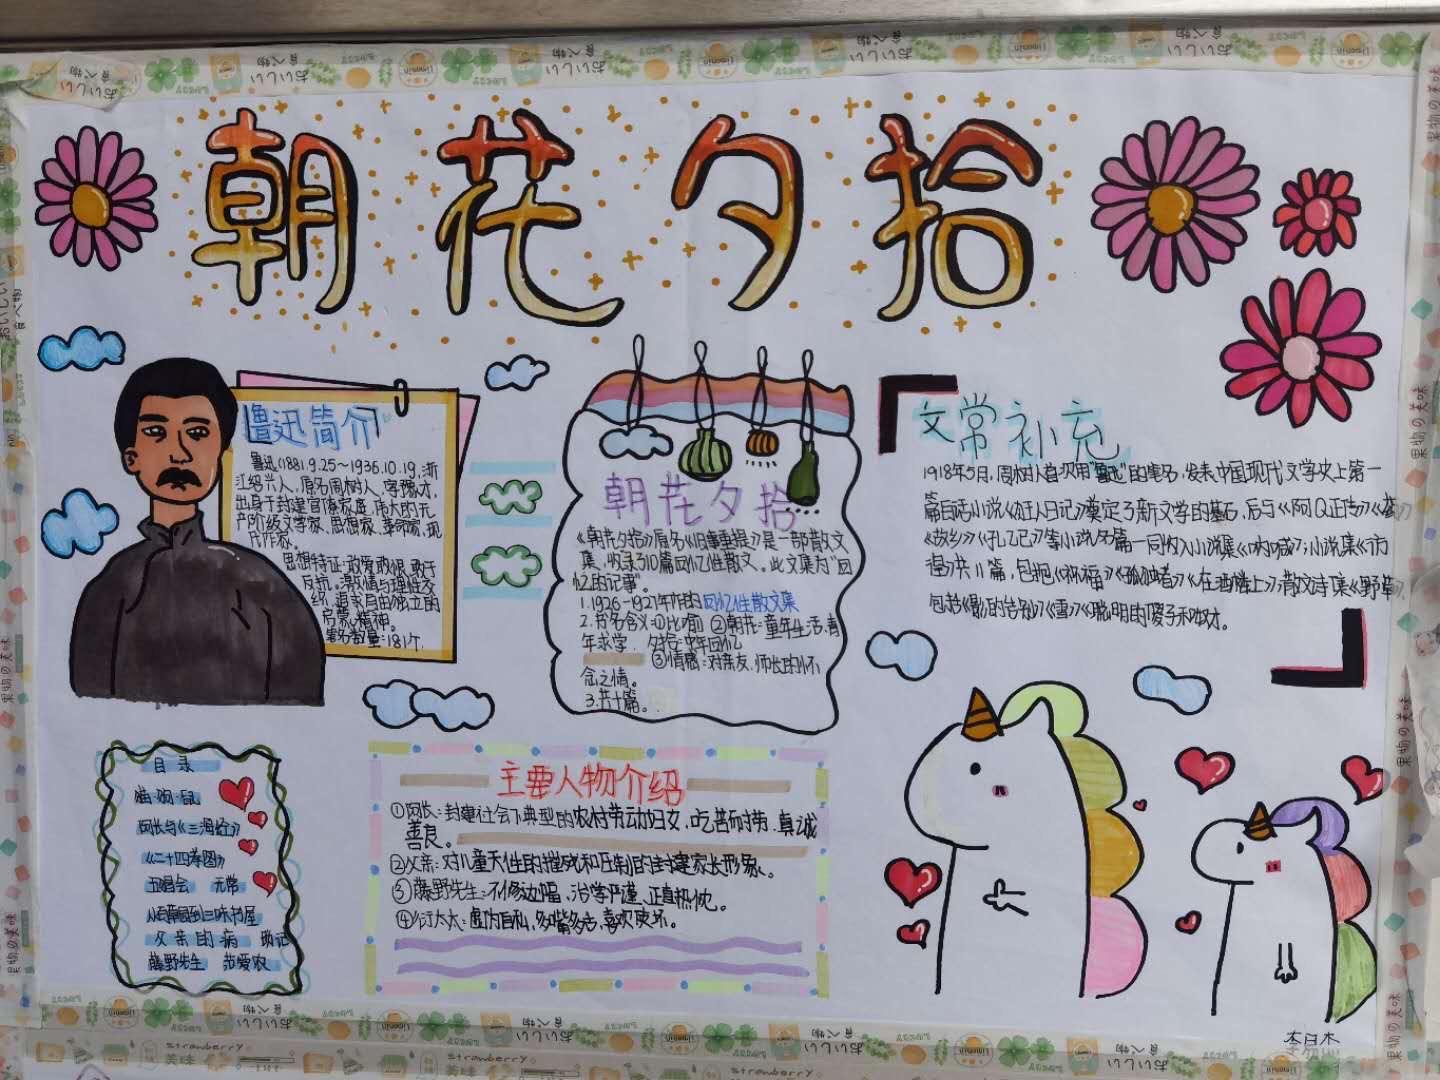 朝花夕拾
鲁迅简介
鲁迅(1881.9.25～1936.10.19,浙
江绍兴人,原名周树人,字豫才,
出身于封建官僚家庭,伟大的无
产阶级文学家、思想家、革命家、现
代作家。
思想特征:敢爱敢恨,敢于
反抗。激情与理性交
织,追求自由独立的
精神。
笔名数量:181个.
朝花夕拾
《朝花夕拾》原名《旧事重提》是一部散文
集,收录了10篇回忆性散文。此文集为"回
忆的记事"。
1.1926-1927年作的回忆性散文集
2.书名含义:①比喻 ②朝花:童年生活,青
年求学. 夕拾:中年回忆
③情感:对亲友,师长的怀
念之情。
3.共十篇。
文常补充
1918年5月,周树人首次用"鲁迅"的笔名,发表中国现代文学史上第一
篇白话小说《狂人日记》奠定了新文学的基石,后与《阿Q正传》《药》
《故乡》《孔乙己》等小说名篇一同收入小说集《呐喊》;小说集《彷
徨》共11篇,包括《祝福》《孤独者》《在酒楼上》;散文诗集《野草》
包括《影的告别》《雪》《聪明的傻子和奴才.
目录
猫·狗·鼠
阿长与《三海经》
《二十四孝图》
五猖会 无常
从百草园到三味书屋
父亲的病 琐记
藤野先生 范爱农
主要人物介绍
①阿长:封建社会下典型的农村劳动妇女,吃苦耐劳,真诚
善良。
②父亲:对儿童天性的摧残和压制的封建家长形象。
③藤野先生:不修边幅,治学严谨、正直热忱。
④衍太太:虚伪自私,多嘴多舌,喜欢使坏。